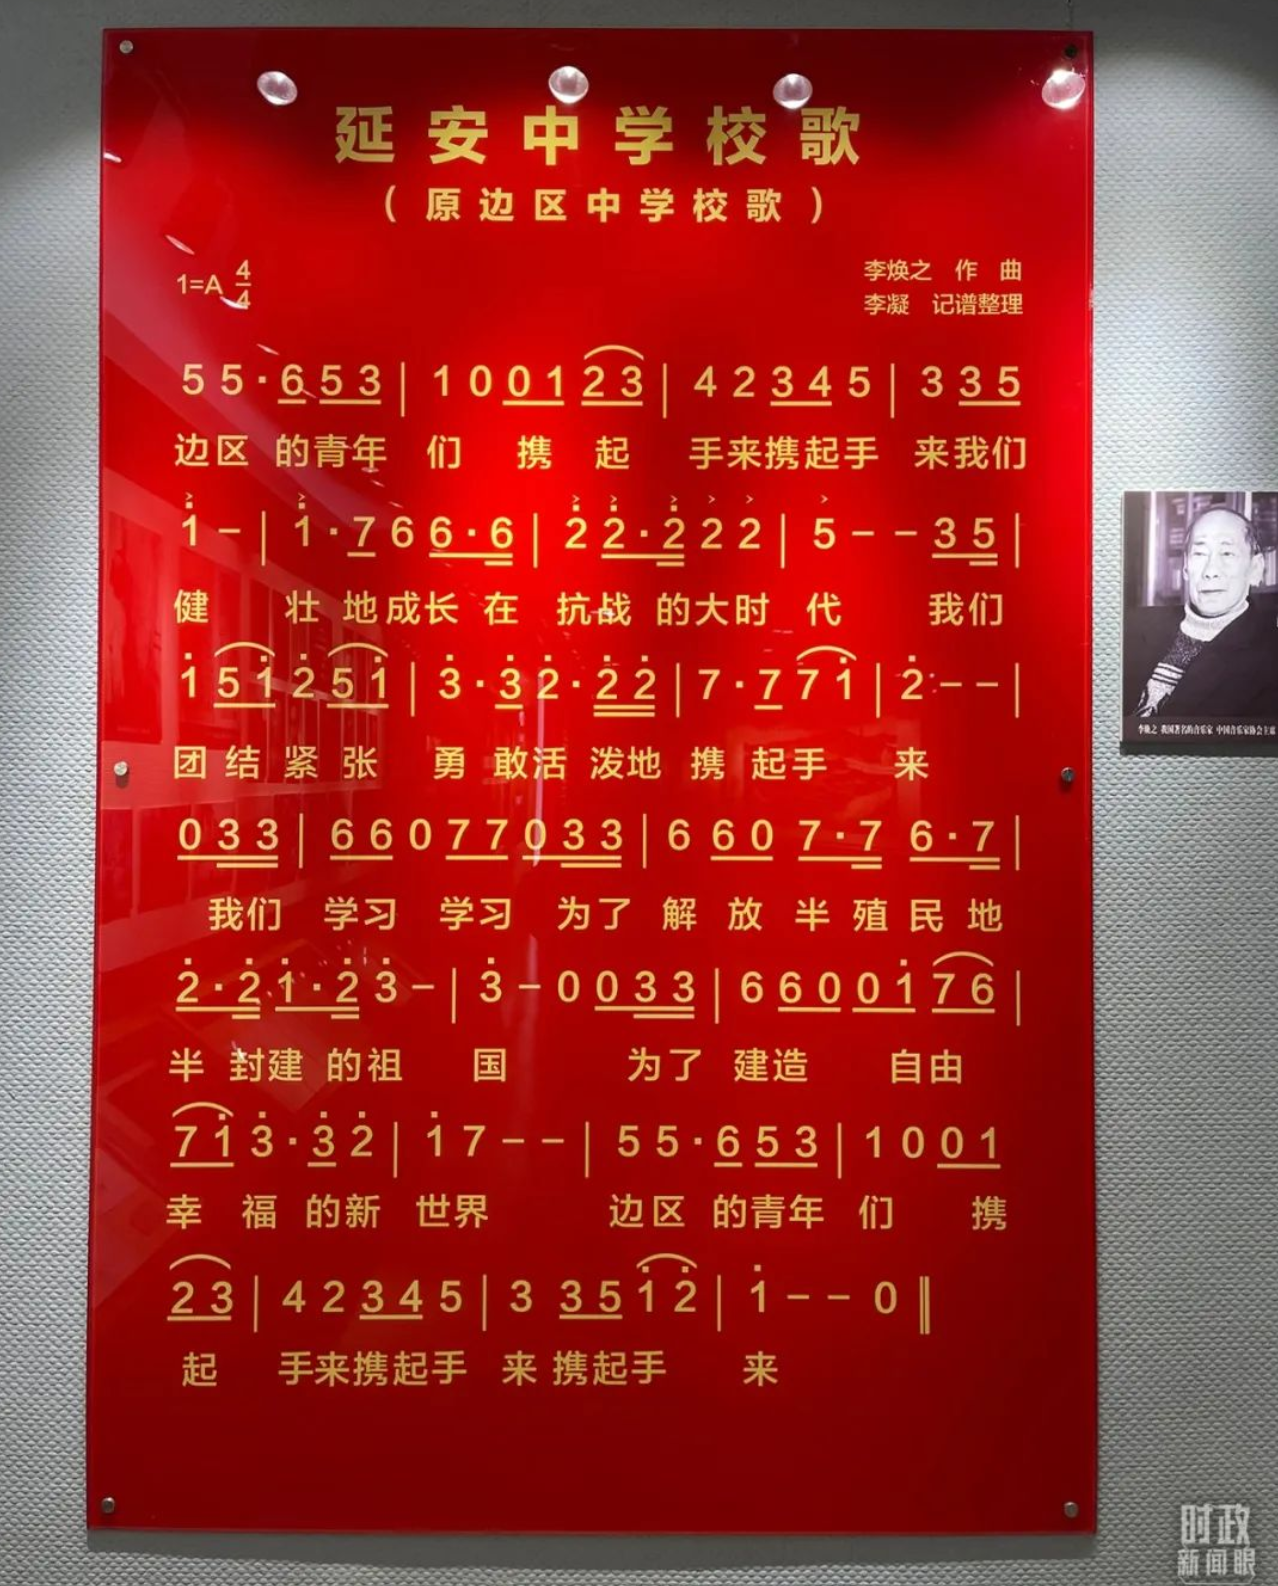 延安中学校歌
（原边区中学校歌）
1=A 4/4
李焕之 作 曲
李凝 记谱整理
5 5 · 6 5 3 | 1 0 0 1 2 3 | 4 2 3 4 5 | 3 3 5
边区 的青年 们 携 起 手来携起手 来我们
1 – | 1 · 7 6 6 · 6 | 2 2 · 2 2 2 | 5 – – 3 5 |
健 壮 地成长 在 抗战 的大时 代 我们
1 5 1 2 5 1 | 3 · 3 2 · 2 2 | 7 · 7 7 1 | 2 – – |
团 结 紧 张 勇 敢活 泼地 携 起手 来
0 3 3 | 6 6 0 7 7 0 3 3 | 6 6 0 7 · 7 6 · 7 |
我们 学习 学习 为了 解 放 半 殖 民 地
2 · 2 1 · 2 3 – | 3 – 0 0 3 3 | 6 6 0 0 1 7 6 |
半 封建 的祖 国 为了 建造 自由
7 1 3 · 3 2 | 1 7 – – | 5 5 · 6 5 3 | 1 0 0 1
幸 福 的新 世界 边区 的青年 们 携
2 3 | 4 2 3 4 5 | 3 3 5 1 2 | 1 – – 0 ‖
起 手来携起手 来 携起手 来
李焕之 我国著名的音乐家 中国音乐家协会主席
时政
新闻眼